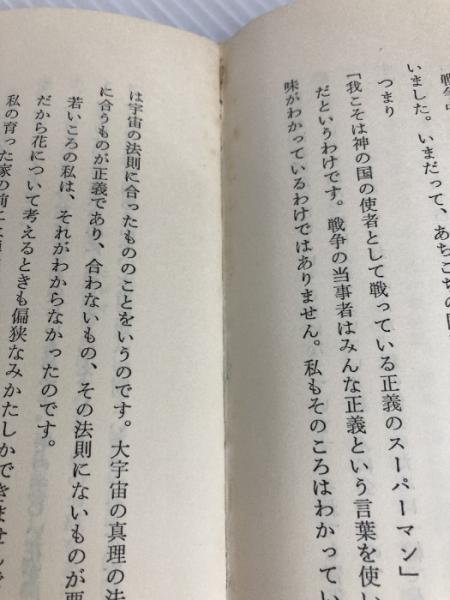 戦争中
いました。いまだって、あちこちの国
つまり
「我こそは神の国の使者として戦っている正義のスーパーマン」
だというわけです。戦争の当事者はみんな正義という言葉を使い
味がわかっているわけではありません。私もそのころはわかってい
は宇宙の法則に合ったもののことをいうのです。大宇宙の真理の法
に合うものが正義であり、合わないもの、その法則にないものが悪
若いころの私は、それがわからなかったのです。
だから花について考えるときも偏狭なみかたしかできませんで
私の育った家の前に